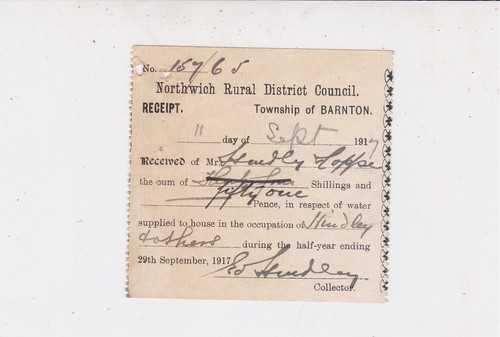 No. 15765
Northwich Rural District Council.
RECEIPT. Township of BARNTON.
11 day of Sept 1917
Received of Mr. Hindley
the sum of Shillings and
fifty one
Pence, in respect of water
supplied to house in the occupation of Hindley
& others during the half-year ending
29th September, 1917.
Hindley
Collector.